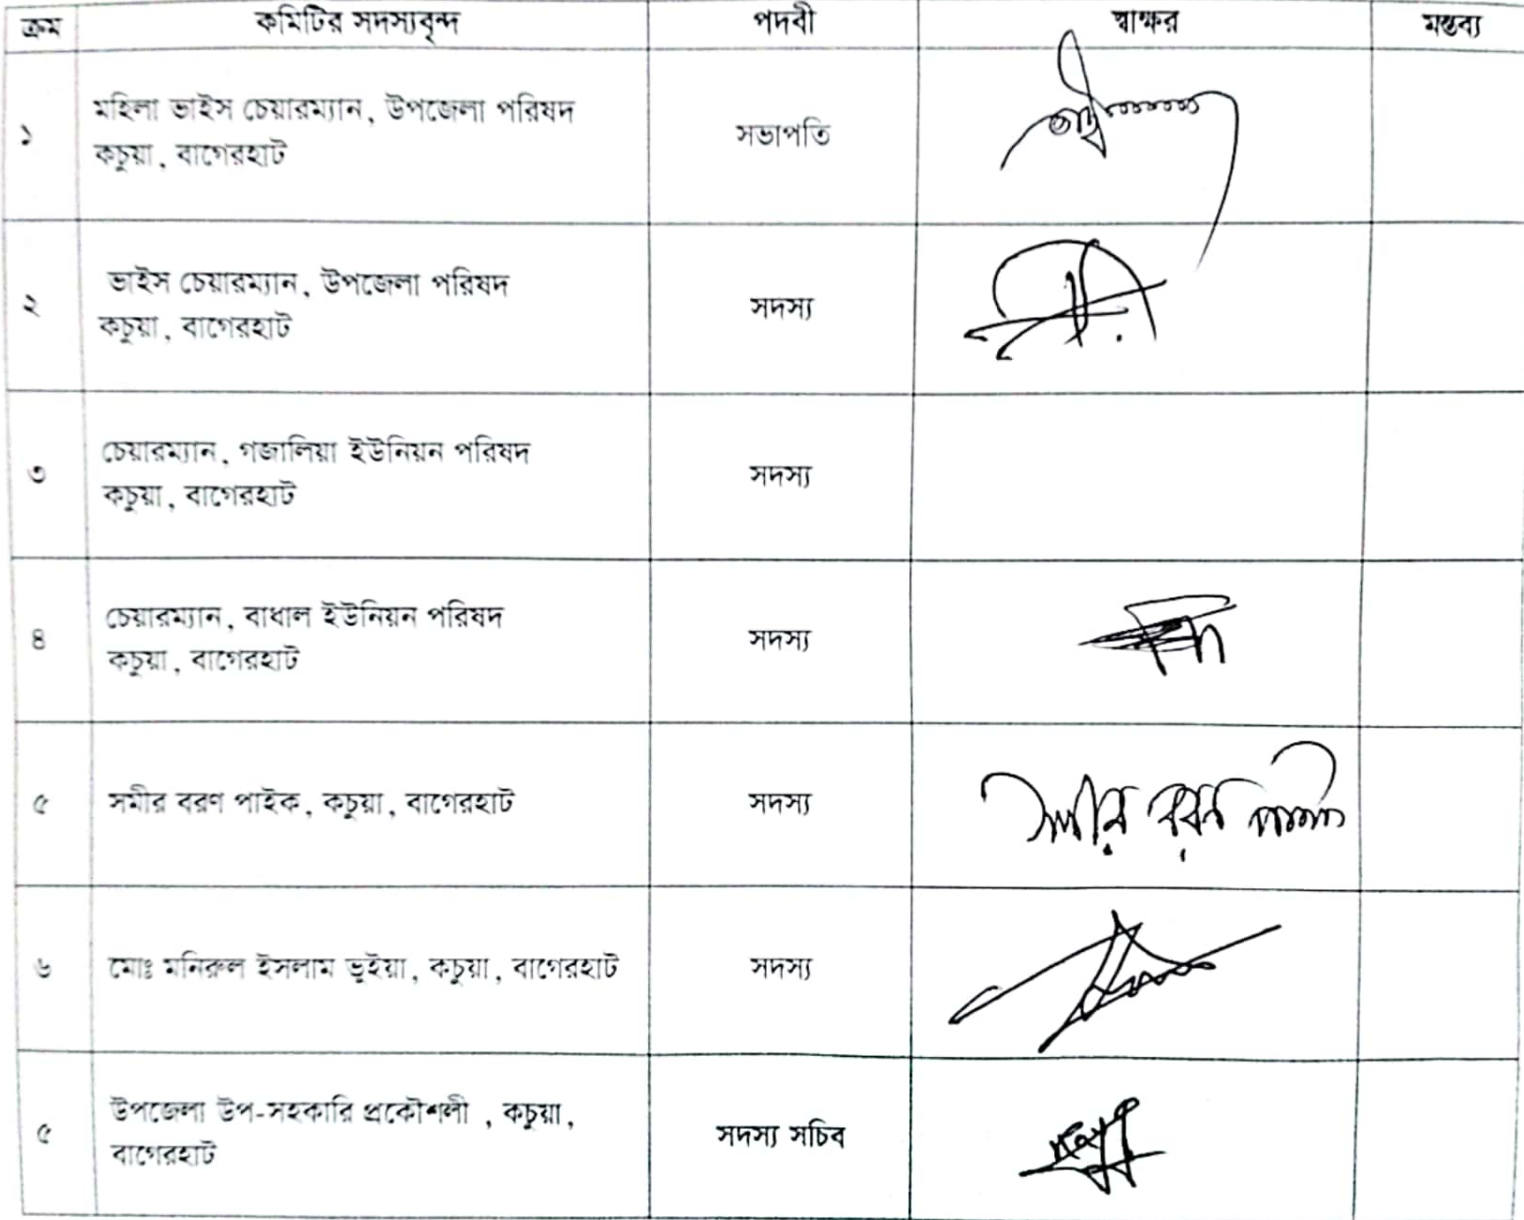 ক্রম কমিটির সদস্যবৃন্দ পদবী স্বাক্ষর মন্তব্য
১ মহিলা ভাইস চেয়ারম্যান, উপজেলা পরিষদ
কচুয়া, বাগেরহাট সভাপতি
২ ভাইস চেয়ারম্যান, উপজেলা পরিষদ
কচুয়া, বাগেরহাট সদস্য
৩ চেয়ারম্যান, গজালিয়া ইউনিয়ন পরিষদ
কচুয়া, বাগেরহাট সদস্য
৪ চেয়ারম্যান, বাধাল ইউনিয়ন পরিষদ
কচুয়া, বাগেরহাট সদস্য
৫ সমীর বরণ পাইক, কচুয়া, বাগেরহাট সদস্য
৬ মোঃ মনিরুল ইসলাম ভুইয়া, কচুয়া, বাগেরহাট সদস্য
৫ উপজেলা উপ-সহকারি প্রকৌশলী , কচুয়া,
বাগেরহাট সদস্য সচিব